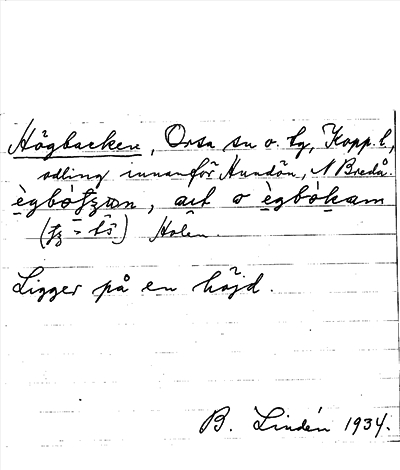 Högbacken, Orsa sn o. tg, Kopp. l,
odling innanför Hundön, N Bredå.
ègbò, art o ègbòkam
( = ) Holen.
Ligger på en höjd.
B. Lindén 1934.